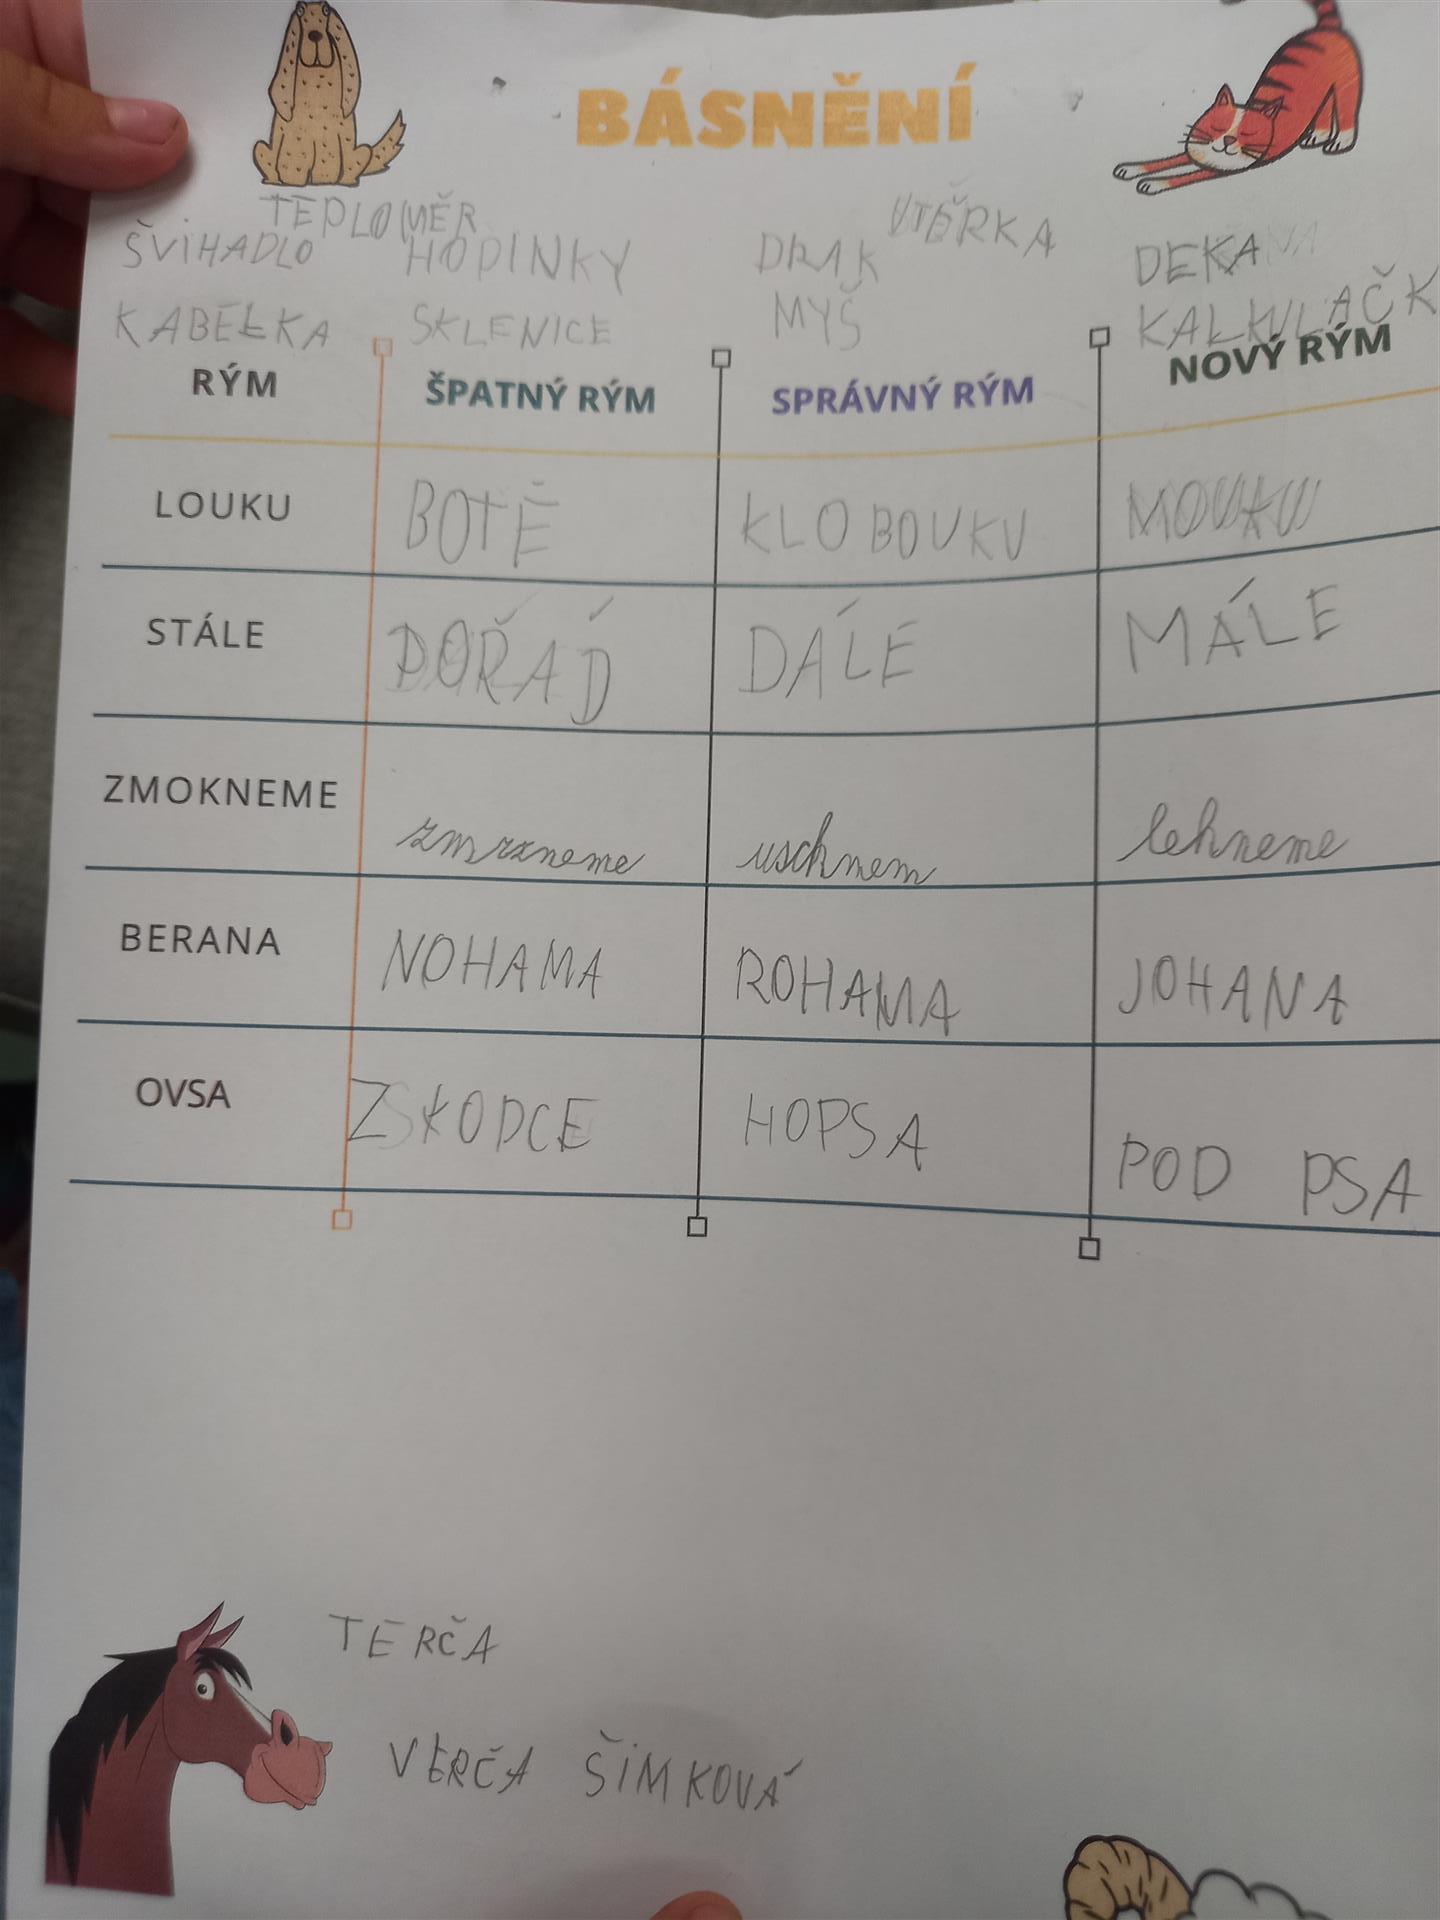 BÁSNĚNÍ
TEPLOMĚR UTĚRKA
ŠVIHADLO HODINKY DRAK DEKA
KABELKA SKLENICE MYŠ KALKULAČK
RÝM ŠPATNÝ RÝM SPRÁVNÝ RÝM NOVÝ RÝM
LOUKU BOTĚ KLOBOUKU MOUKU
STÁLE POŘÁD DÁLE MÁLE
ZMOKNEME zmrzneme uschnem lehneme
BERANA NOHAMA ROHAMA JOHANA
OVSA ZSKODCE HOPSA POD PSA
TERČA
VERČA ŠIMKOVÁ